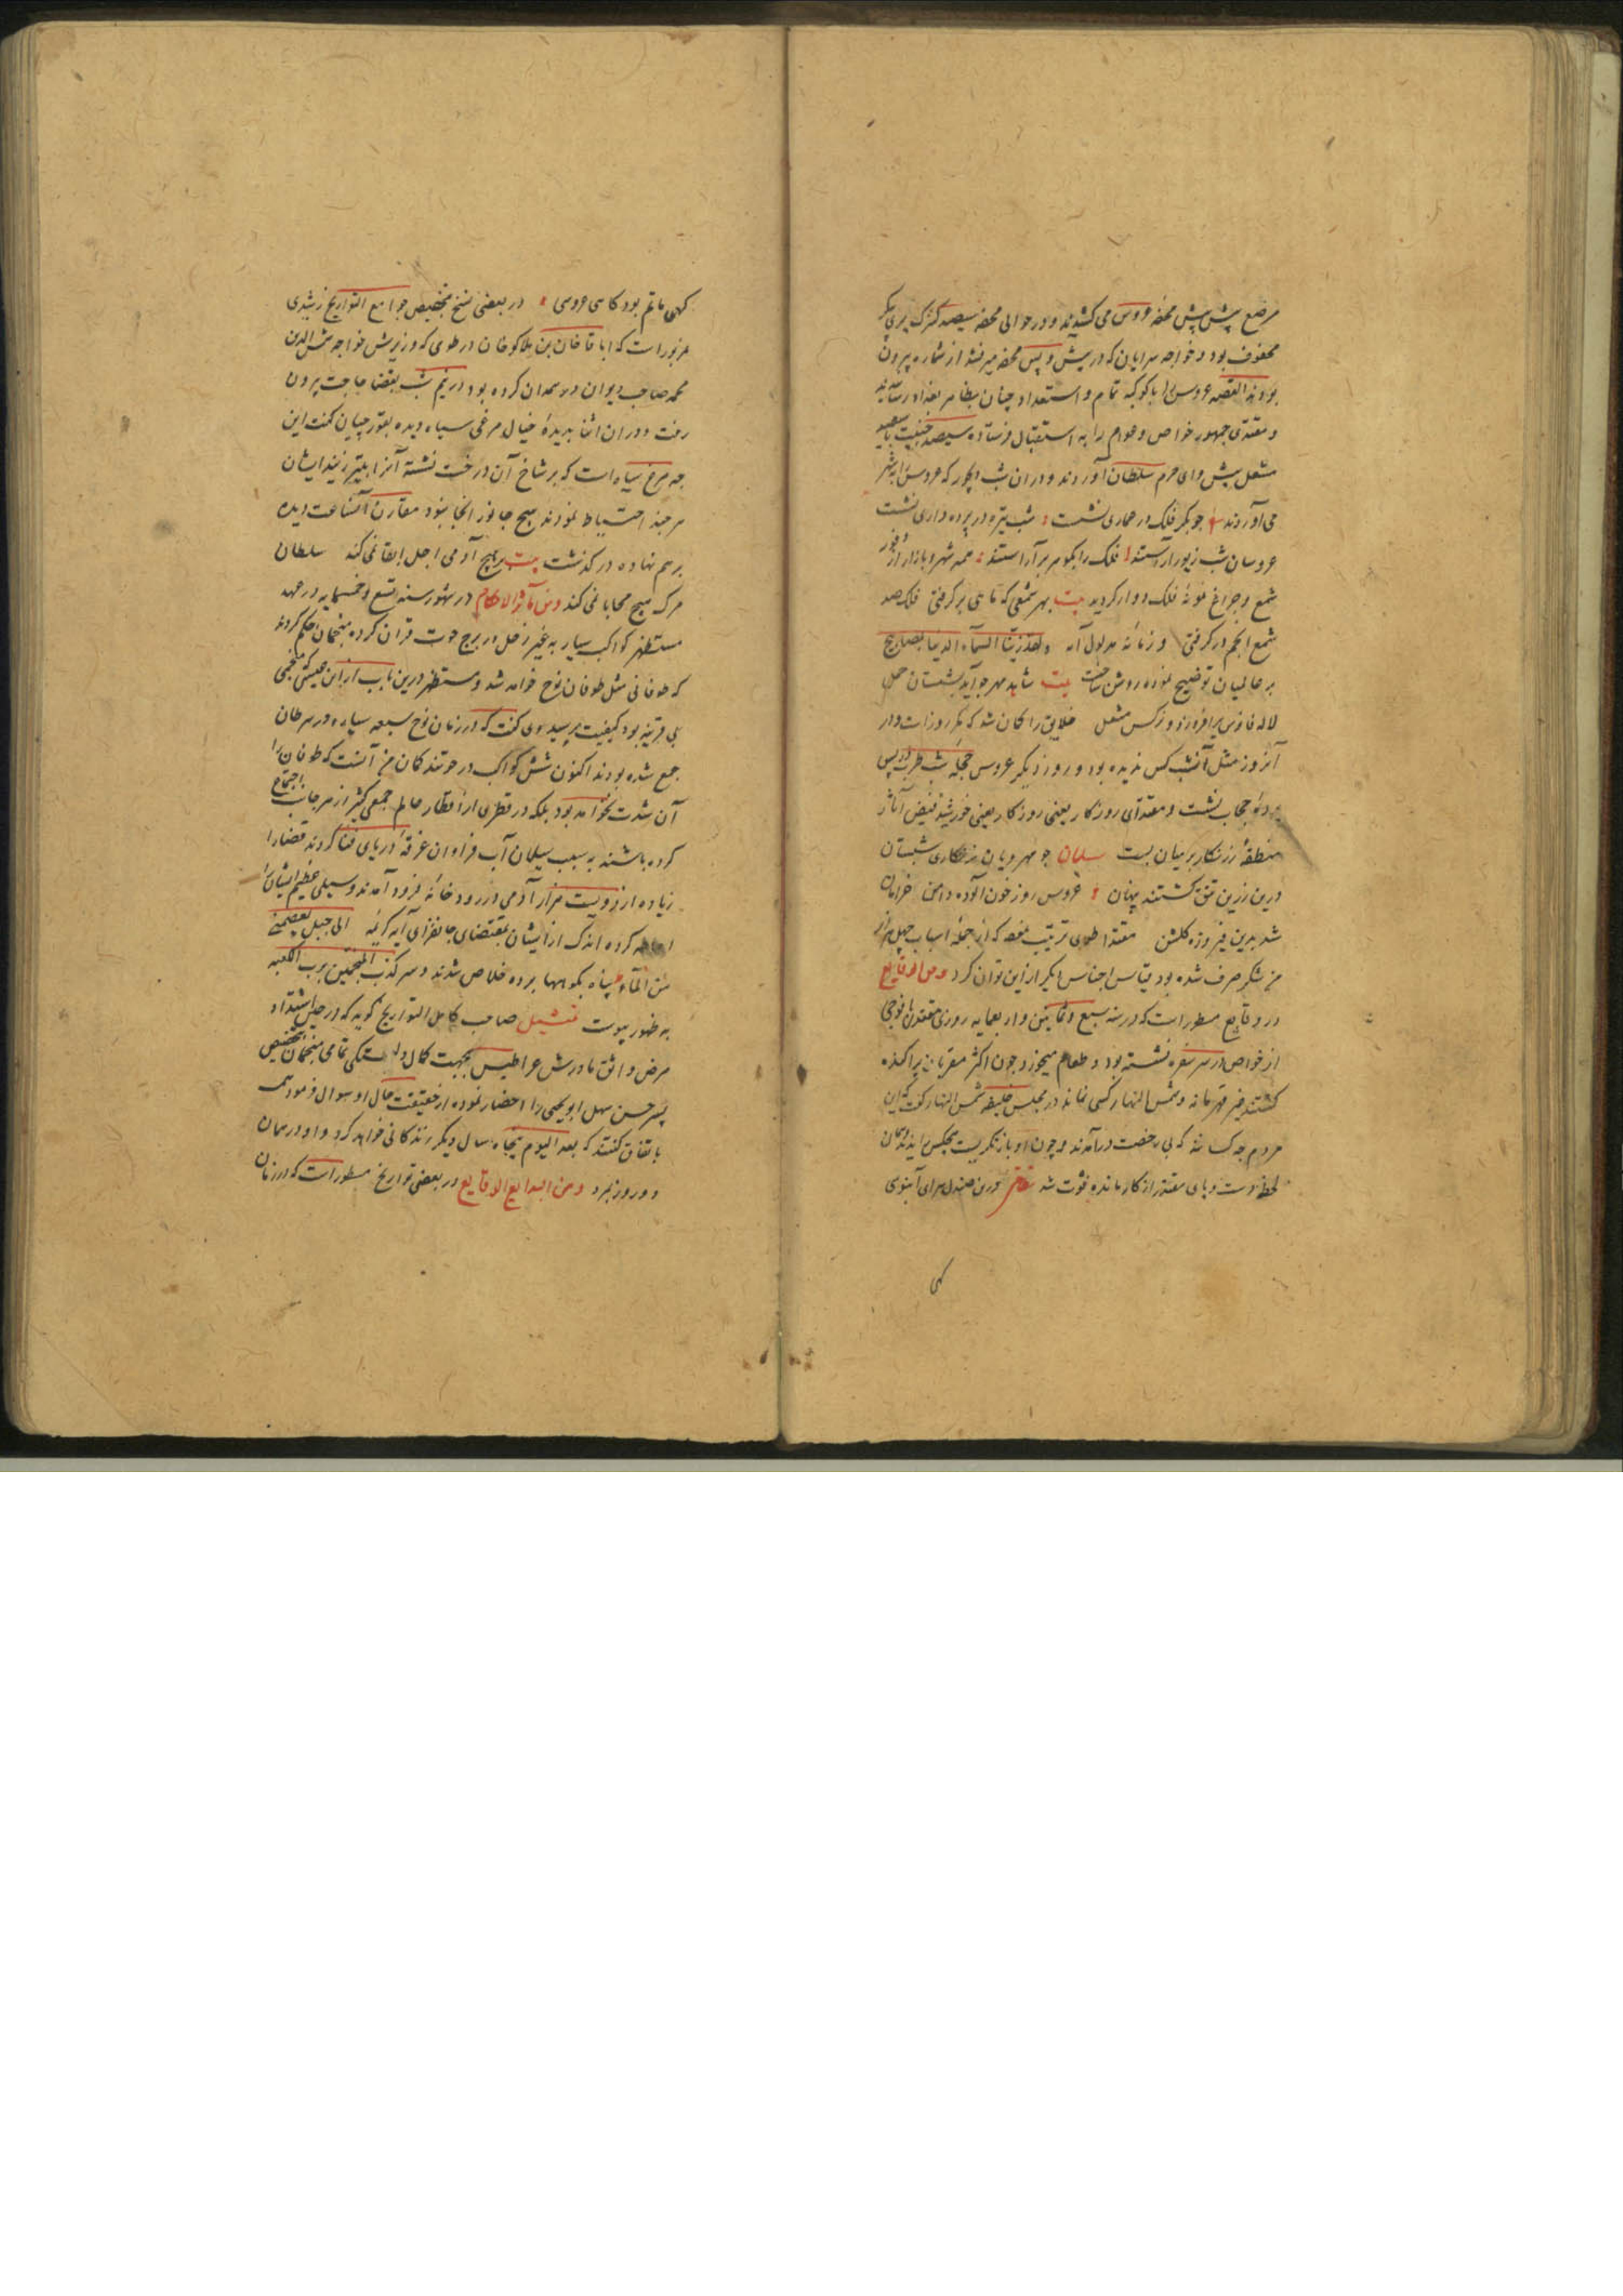 مرصع پیش پیش محفهٔ عروس می کشیدند و در حوالی محفه سیصد کنیزک پری پیکر
محفوف بود و خواجه سرایان که در پیش و پس محفه میرفتند از شماره بیرون
بودند القصه عروس را با کوکبه تمام و استعداد چنان بظاهر بغداد رسانیدند
و مقتدی جمهور خواص و عوام را به استقبال فرستاده سیصد جنیبت با سیصد
مشعل پیش وای حرم سلطان آوردند و در ان شب دیجور که عروس را بشهر
می آوردند چو بکر فلک در عماری نشست شب تیره در پرده داری نشست
عروسان شب زیور آراستند فلک را بگوهر برآراستند همه شهر و بازار از نور
شمع و چراغ نمونهٔ فلک دوار گردید بیت بهر شمعی که تا هی بر گرفتی فلک صد
شمع انجم در گرفتی و زمانه مدلول آیه ولقد زینا السماء الدنیا بمصابیح
بر عالمیان توضیح نموده روشن ساخت بیت شاهد مهر چو آید بشبستان حمل
لاله فانوس برافروزد و نرکس مشعل خلایق را گمان شد که مگر روزات ودر
آنروز مثل آنشب کس ندیده بود و روز دیگر عروس حجلهٔ شب طرب در پس
پردهٔ حجاب نشست و مقتدای روزگار یعنی خورشید فیض آثار
منطقهٔ زرنگار بر میان بست سلمان چو مهرویان زنگاری شبستان
درین زرین تتق گشتند پنهان عروس روز خون آلوده دامن خرامان
شد بدین فیروزه گلشن مقتدا طوی ترتیب نمود که از جمله اسباب چهل هزار
من شکر صرف شده بود قیاس اجناس دیگر ازین توان کرد ومن الوقایع
در وقایع مسطور است که در سنه سبع و ثمانین و اربعمایه روزی مقتدی با فوجی
از خواص در سر سفره نشسته بود و طعام میخورد چون اکثر مقربان پراکنده
گشتند غیر قهرمانه و شمس النهار کسی نماند در مجلس خلیفه شمس النهار گفت که این
مردم چه کسانند که بی رخصت درآمدند و چون او باز نگریست هیچکس را ندید و همان
لحظه دست و پای مقتدر از کار مانده فوت شد درین صندل سرای آبنوسی
کهی
کهی ماتم بود کاهی عروسی در بعضی نسخ بتخصیص جوامع التواریخ رشیدی
مزبور است که اباقا خان بن هلاکو خان در طوی که وزیرش خواجه شمس الدین
محمد صاحب دیوان در همدان کرده بود در نیم شب بقضا حاجت بیرون
رفت و در ان اثنا بدیدهٔ خیال مرغی سیاه دیده بقورچیان گفت این
چه مرغ سیاه است که بر شاخ آن درخت نشسته آنرا بتیر زنید ایشان
هر چند احتیاط نمودند هیچ جانور انجا نبود مقارن آنساعت دیده
برهم نهاده درگذشت بیت بر هیچ آدمی اجل ابقا نمی کند سلطان
مرگ هیچ محابا نمی کند ومن مآثر الاحکام در شهور سنه تسع و خمسمایه در عهد
مستظهر کواکب سیار به غیر زحل در برج حوت قران کرده منجمان حکم کردند
که طوفانی مثل طوفان نوح خواهد شد و مستظهر درین باب از ابن عیسی که منجمی
بی قرینه بود کیفیت پرسید وی گفت که در زمان نوح سبعه سیاره در سرطان
جمع شده بودند اکنون شش کواکب در حوتند گمان من آنست که طوفان را
آن شدت نخواهد بود بلکه در قطری از اقطار عالم جمعی کثیر از هر جانب اجتماع
کرده باشند به سبب سیلان آب فراوان غرقهٔ دریای فنا گردند قضا را
زیاده از دویست هزار آدمی در رودخانه فرود آمدند و سیلی عظیم ایشان را
احاطه کرده اندک از ایشان بمقتضای جانفزای آیه کریمه الی جبل یعصمنی
من الماء پناه بکوهها برده خلاص شدند و سر کذب المنجمین برب الکعبه
به ظهور پیوست تمثیل صاحب کامل التواریخ گوید که در حین اشتداد
مرض واثق مادرش عراطیس بجهت کمال دلبستگی تمامی منجمان بتخصیص
پسر حسن سهل ابویحیی را احضار نموده از حقیقت حال او سوال فرمود همه
باتفاق گفتند که بعد الیوم پنجاه سال دیگر زندگانی خواهد کرد و او در همان
دو روز بمرد ومن البدایع الوقایع در بعضی تواریخ مسطور است که در زمان